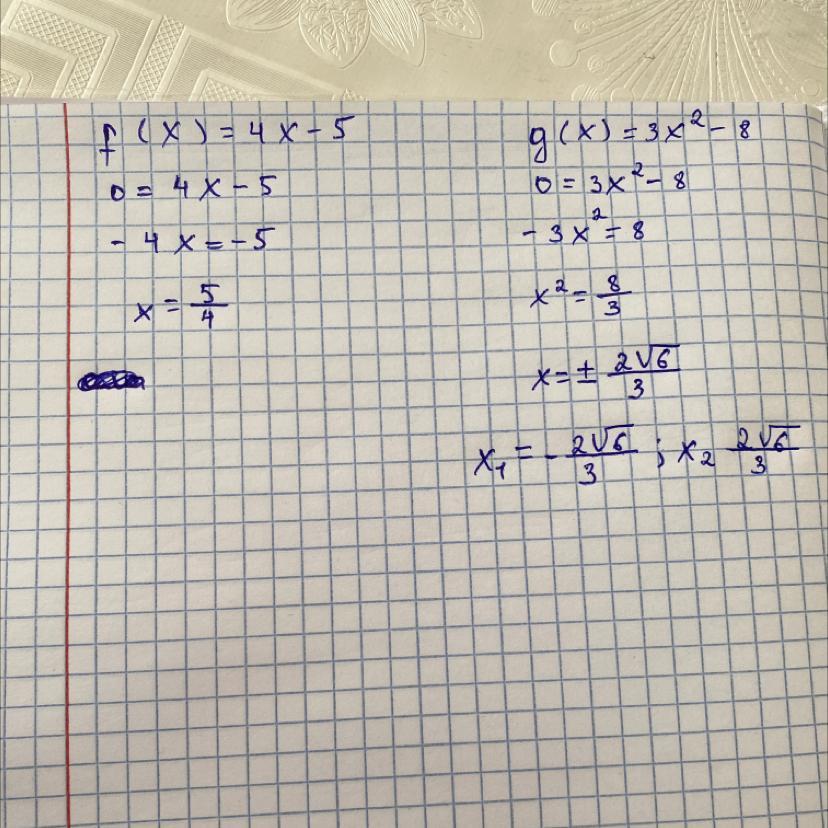 f(x) = 4x - 5
0 = 4x - 5
- 4x = -5
x = 5/4
g(x) = 3x² - 8
0 = 3x² - 8
- 3x² = 8
x² = 8/3
x = ± 2√6/3
x₁ = - 2√6/3 ; x₂ 2√6/3